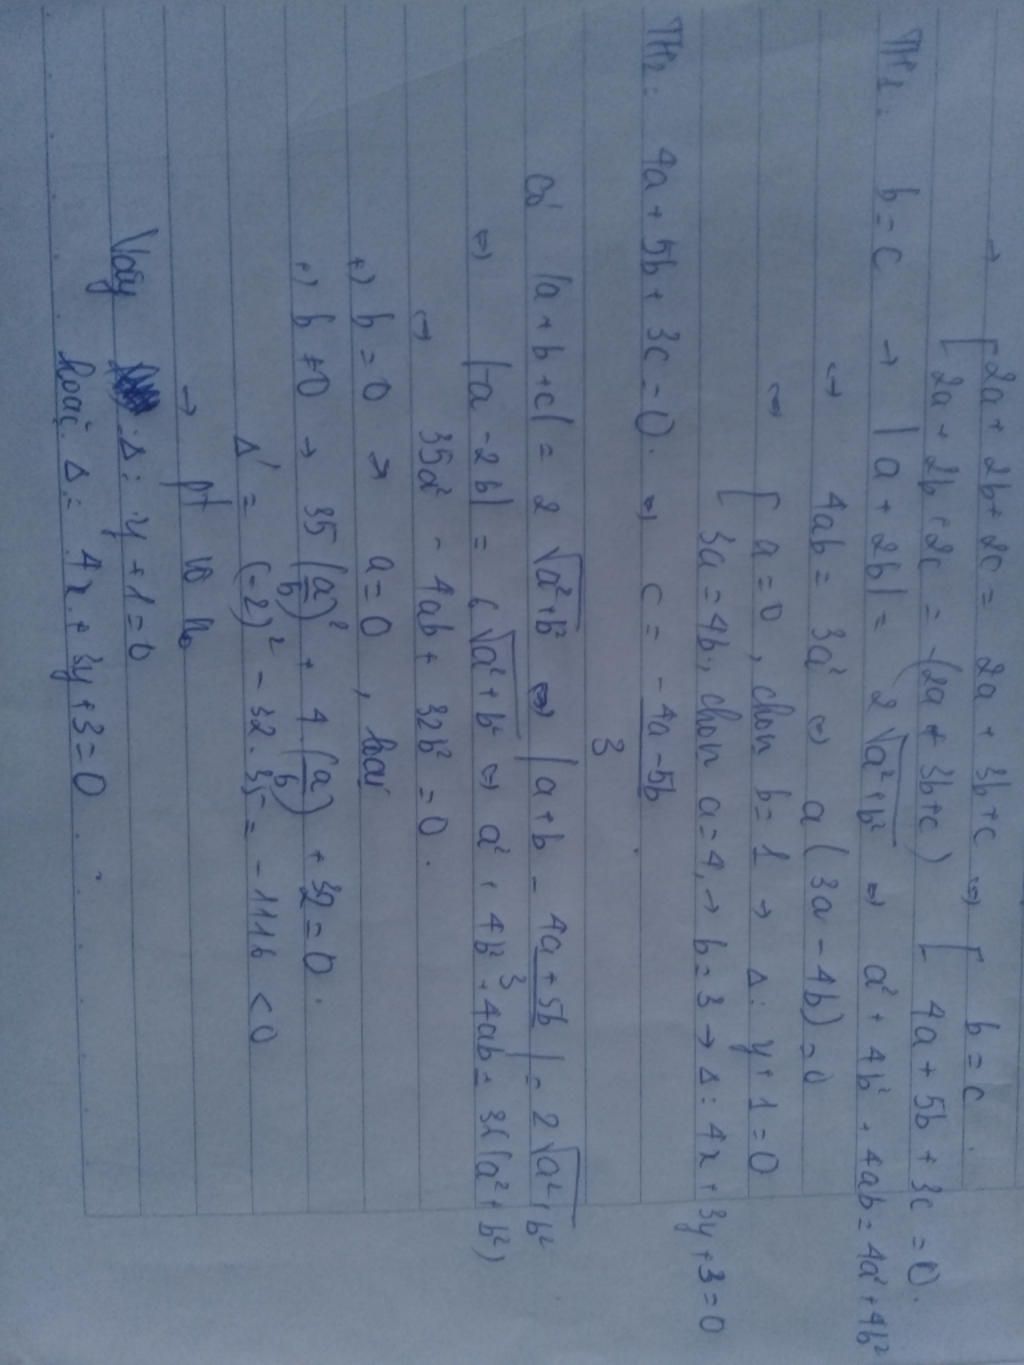 → [ 2a + 2b + 2c = 2a + 3b + c ⇔ [ b = c.
[ 2a + 2b + 2c = -(2a + 3b + c) [ 4a + 5b + 3c = 0.
TH1: b = c → |a + 2b| = 2√(a² + b²) ⇔ a² + 4b² + 4ab = 4a² + 4b²
⇔ 4ab = 3a² ⇔ a(3a - 4b) = 0
⇔ [ a = 0, chọn b = 1 → Δ: y + 1 = 0
[ 3a = 4b, chọn a = 4, → b = 3 → Δ: 4x + 3y + 3 = 0
TH2: 4a + 5b + 3c = 0. ⇔ c = (-4a - 5b)/3
Có |a + b + c| = 2√(a² + b²) ⇔ |a + b - (4a + 5b)/3| = 2√(a² + b²)
⇔ |-a - 2b| = 6√(a² + b²) ⇔ a² + 4b² + 4ab = 36(a² + b²)
⇔ 35a² - 4ab + 32b² = 0.
+) b = 0 → a = 0, loại
+) b ≠ 0 → 35(a/b)² + 4.(a/b) + 32 = 0.
Δ' = (-2)² - 32.35 = -1116 < 0
→ pt vô n₀
Vậy Δ: y + 1 = 0
hoặc Δ: 4x + 3y + 3 = 0